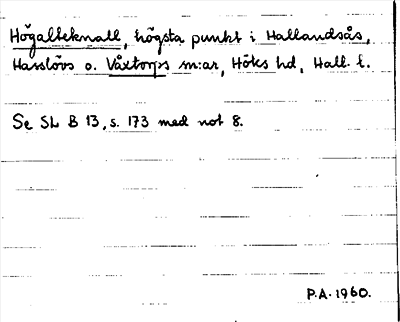 Högalteknall, högsta punkt i Hallandsås,
Hasslövs o. Våxtorps m:ar, Höks hd, Hall. l.
Se SL B 13, s. 173 med not 8.
P.A. 1960.